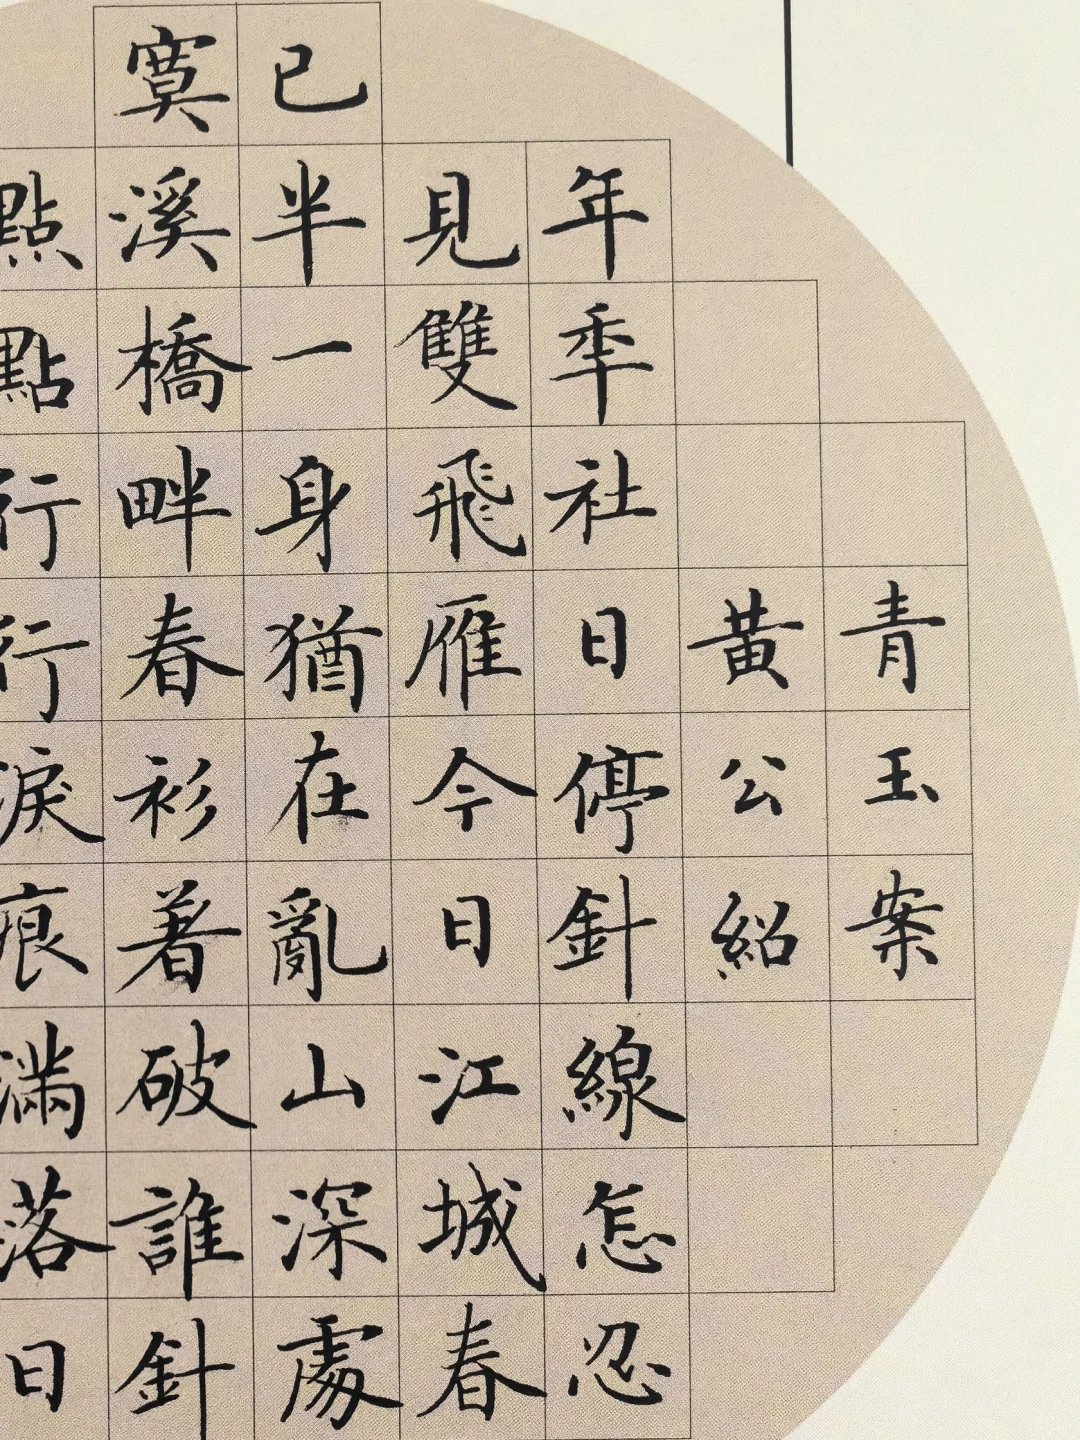 青玉案
黃公紹
年秊社日停針線怎忍
見雙飛雁今日江城春
已半一身猶在亂山深處
寞溪橋畔春衫著破誰針
點點行行淚痕滿落日